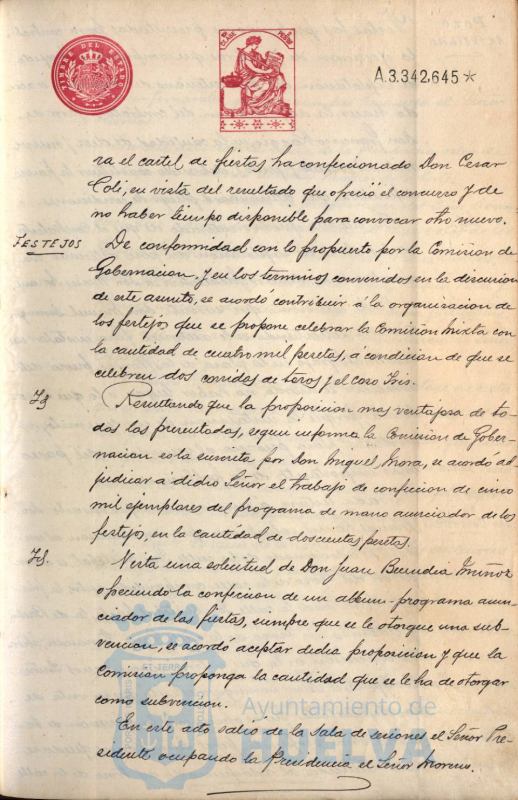 TIMBRE DEL ESTADO
A.3.342.645*
ra el cartel de fiestas ha confeccionado Don Cesar
Coli, en vista del resultado que ofreció el concurso y de
no haber tiempo disponible para convocar otro nuevo.
FESTEJOS
De conformidad con lo propuesto por la Comision de
Gobernacion, y en los terminos convenidos en la discusion
de este asunto, se acordó contribuir á la organizacion de
los festejos que se propone celebrar la Comision Mixta con
la cantidad de cuatro mil pesetas, á condicion de que se
celebren dos corridas de toros y el coso Iris.
Id
Resultando que la proposicion mas ventajosa de to-
das las presentadas, segun informa la Comision de Gober-
nacion es la suscrita por Don Miguel Mora, se acordó ad-
judicar á dicho Señor el trabajo de confecion de cinco
mil ejemplares del programa de mano anunciador de los
festejos, en la cantidad de doscientas pesetas.
Id.
Vista una solicitud de Don Juan Muñoz
ofreciendo la confecion de un album-programa anun-
ciador de las fiestas, siempre que se le otorgue una sub-
vencion, se acordó aceptar dicha proposicion y que la
Comision proponga la cantidad que se le ha de otorgar
como subvencion.
En este acto salió de la sala de sesiones el Señor Pre-
sidente ocupando la Presidencia el Señor Moreno.
Ayuntamiento de
HUELVA